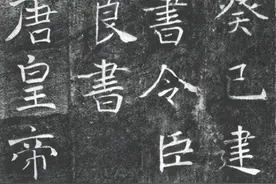 癸巳建
書令臣
良書
唐皇帝